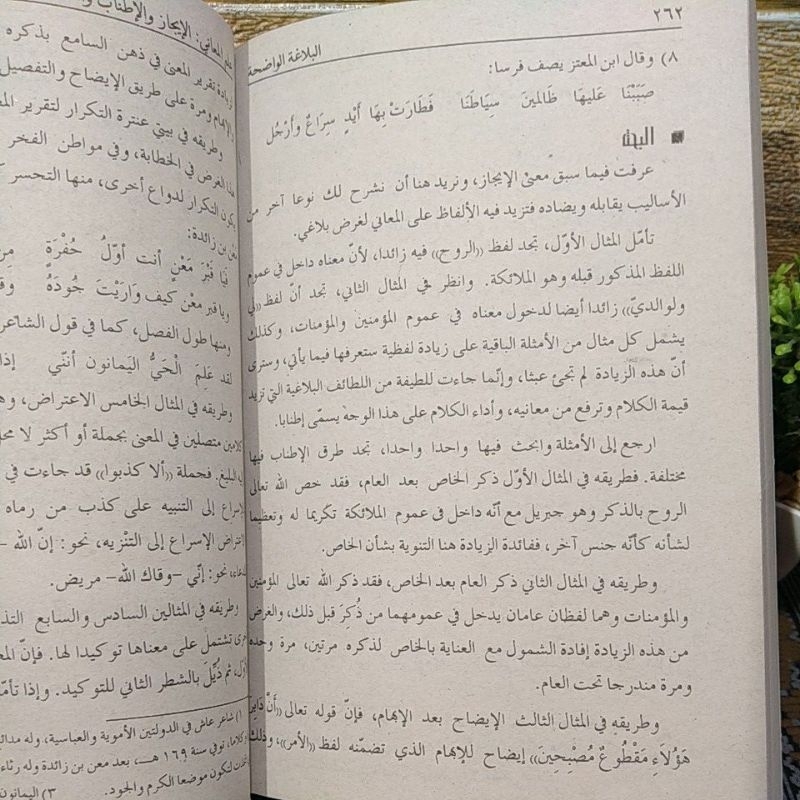 ٢٦٢
البلاغة الواضحة
٨) وقال ابن المعتز يصف فرسا:
صَبَبْنَا عَليهَا ظَالمِينَ سِيَاطَنَا فَطَارَتْ بِهَا أَيْدٍ سِرَاعٌ وَأَرْجُل
البحث
عرفت فيما سبق معنى الإيجاز، ونريد هنا أن نشرح لك نوعا آخر من
الأساليب يقابله ويضاده فتزيد فيه الألفاظ على المعاني لغرض بلاغي.
تأمّل المثال الأوّل، تجد لفظ «الروح» فيه زائدا، لأنّ معناه داخل في عموم
اللفظ المذكور قبله وهو الملائكة. وانظر في المثال الثاني، تجد أنّ لفظ «لي
ولوالديّ» زائدا أيضا لدخول معناه في عموم المؤمنين والمؤمنات، وكذلك
يشمل كل مثال من الأمثلة الباقية على زيادة لفظية ستعرفها فيما يأتي، وسترى
أنّ هذه الزيادة لم تجئ عبثا، وإنّما جاءت للطيفة من اللطائف البلاغية التي تزيد
قيمة الكلام وترفع من معانيه، وأداء الكلام على هذا الوجه يسمّى إطنابا.
ارجع إلى الأمثلة وابحث فيها واحدا واحدا، تجد طرق الإطناب فيها
مختلفة. فطريقه في المثال الأوّل ذكر الخاص بعد العام، فقد خص الله تعالى
الروح بالذكر وهو جبريل مع أنّه داخل في عموم الملائكة تكريما له وتعظيما
لشأنه كأنّه جنس آخر، ففائدة الزيادة هنا التنوية بشأن الخاص.
وطريقه في المثال الثاني ذكر العام بعد الخاص، فقد ذكر الله تعالى المؤمنين
والمؤمنات وهما لفظان عامان يدخل في عمومهما من ذُكِرَ قبل ذلك، والغرض
من هذه الزيادة إفادة الشمول مع العناية بالخاص لذكره مرتين، مرة وحده
ومرة مندرجا تحت العام.
وطريقه في المثال الثالث الإيضاح بعد الإبهام، فإنّ قوله تعالى «أَنَّ دَابِرَ
هَؤُلَاءِ مَقْطُوعٌ مُصْبِحِينَ» إيضاح للإبهام الذي تضمّنه لفظ «الأمر»، وذلك
علم المعاني: الإيجاز والإطناب
لزيادة تقرير المعنى في ذهن السامع بذكره
الإبهام ومرة على طريق الإيضاح والتفصيل
وطريقه في بيتي عنترة التكرار لتقرير
هذا الغرض في الخطابة، وفي مواطن الفخر
يكون التكرار لدواع أخرى، منها التحسر
بن زائدة:
فَيَا قَبْرَ مَعْنٍ أنت أوّلُ حُفْرَةٍ
ويا قبر معْن كيف وَارَيْتَ جُودَهُ
ومنها طول الفصل، كما في قول الشاعر
لقد عَلمَ الْحَيُّ اليَمانون أنّني
وطريقه في المثال الخامس الاعتراض،
كلامين متصلين في المعنى بجملة أو أكثر لا
البليغ. فجملة «ألا كذبوا» قد جاءت في
الإسراع إلى التنبيه على كذب من رماه
الإسراع إلى التنْزيه، نحو: إنّ الله –
نحو: إنّي –وقاك الله– مريض.
وطريقه في المثالين السادس والسابع
أخرى تشتمل على معناها توكيدا لها. فإنّ
ثم ذُيِّلَ بالشطر الثاني للتوكيد. وإذا
١) شاعر عاش في الدولتين الأموية والعباسية، وله
توفي سنة ١٦٩ هـ، بعد معن بن زائدة وله
لتكون موضعا الكرم والجود.
٣) اليمانون